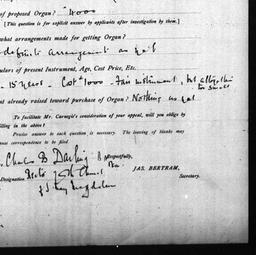 of proposed Organ? 4000
[This question is for explicit answer by applicants after investigation by them.]
what arrangements made for getting Organ?
definite arrangement as yet
ulars of present Instrument, Age, Cost Price, Etc.
15 years - Cost $1000 - Fair instrument, but altogether
too small
nt already raised toward purchase of Organ? Nothing as yet
To facilitate Mr. Carnegie's consideration of appeal, will you oblige by
filling in the above?
Precise answer to each question is necessary. The leaving of blanks may
mean correspondence to be filed.
Respectfully,
Charles D. Darling
JAS. BERTRAM,
Secretary.
Designation